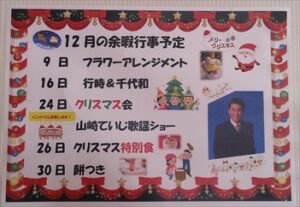 12月の余暇行事予定
メリー
クリスマス
9日 フラワーアレンジメント
16日 行時&千代和
24日 クリスマス会
山崎ていじ歌謡ショー
26日 クリスマス特別食
30日 餅つき